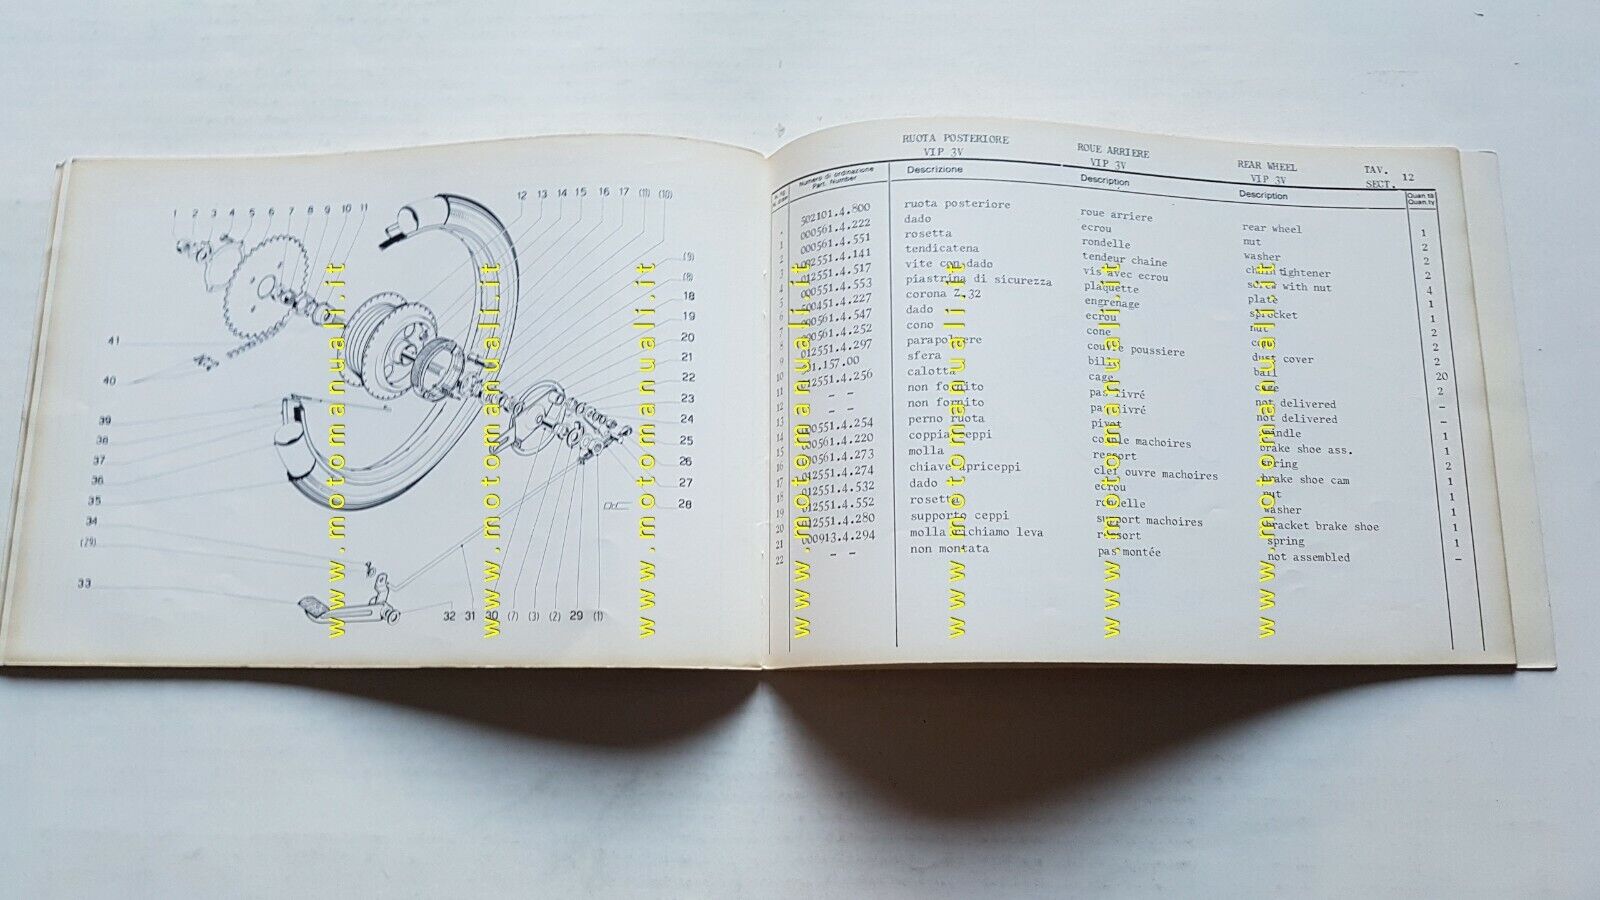 1 2 3 4 5 6 7 8 9 10 11
12 13 14 15 16 17 (11) (10)
(9)
(8)
18
19
20
21
22
23
24
25
26
27
28
41
40
39
38
37
36
35
34
(29)
33
32 31 30 (7) (3) (2) 29 (1)
www.motomanuali.it
www.motomanuali.it
www.motomanuali.it
RUOTA POSTERIORE ROUE ARRIERE REAR WHEEL TAV. 12
VIP 3V VIP 3V VIP 3V SECT.
Numero di ordinazione Descrizione Description Description Quan.tà
Part. Number Quan.ty
- 502101.4.800 ruota posteriore roue arriere rear wheel 1
1 000561.4.222 dado ecrou nut 2
2 000561.4.551 rosetta rondelle washer 2
3 002551.4.141 tendicatena tendeur chaine chain tightener 2
4 012551.4.517 vite con dado vis avec ecrou screw with nut 4
5 000551.4.553 piastrina di sicurezza plaquette plate 1
6 000451.4.227 corona Z.32 engrenage sprocket 1
7 000561.4.547 dado ecrou nut 2
8 000561.4.252 cono cone 2
9 012551.4.297 parapolvere couvre poussiere dust cover 2
10 .157.00 sfera bille ball 20
11 012551.4.256 calotta cage cage 2
12 - - non fornito pas livré not delivered -
13 - - non fornito pas livré not delivered -
14 000551.4.254 perno ruota pivot spindle 1
15 000561.4.220 coppia ceppi couple machoires brake shoe ass. 1
16 000561.4.273 molla ressort spring 2
17 012551.4.274 chiave apriceppi clef ouvre machoires brake shoe cam 1
18 012551.4.532 dado ecrou nut 1
19 012551.4.552 rosetta rondelle washer 1
20 012551.4.280 supporto ceppi support machoires bracket brake shoe 1
21 000913.4.294 molla richiamo leva ressort spring 1
22 - - non montata pas montée not assembled -
www.motomanuali.it
www.motomanuali.it
www.motomanuali.it
www.motomanuali.it